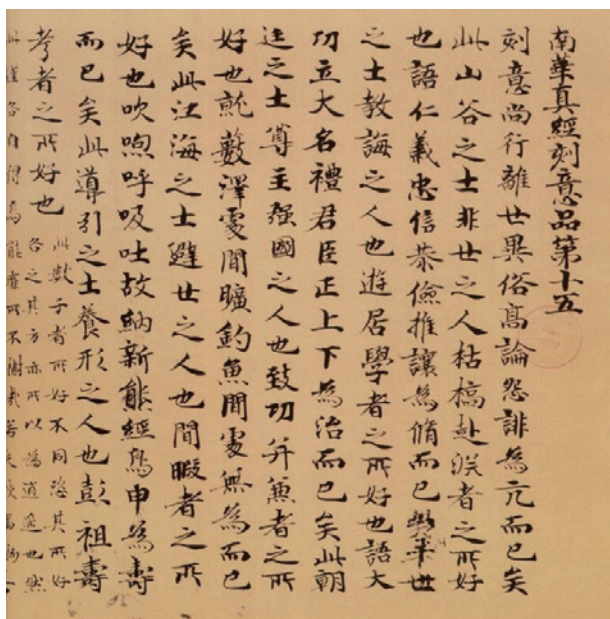 南華真經刻意品第十五
刻意尚行離世異俗髙論怨誹為亢而已矣
此山谷之士非世之人枯槁赴淵者之所好
也語仁義忠信恭儉推讓為脩而已平世
之士教誨之人也遊居學者之所好也語大
功立大名禮君臣正上下為治而已矣此朝
廷之士尊主強國之人也致功并兼者之所
好也就藪澤處間曠釣魚間處無為而已
矣此江海之士避世之人也間暇者之所
好也吹呴呼吸吐故納新熊經鳥申為壽
而已矣此導引之士養形之人也彭祖壽
考者之所好也
此數子者所好不同恣其所好
各之其方亦所以為逍遙也然
此僅各自得焉能靡所不樹哉若夫使萬物